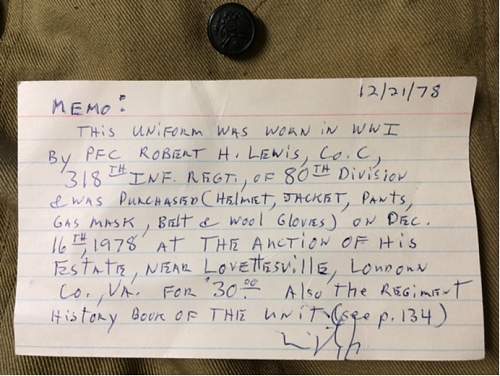 12/21/78
MEMO:
THIS UNIFORM WAS WORN IN WWI
BY PFC ROBERT H. LEWIS, CO. C,
318TH INF. REGT., OF 80TH DIVISION
& WAS PURCHASED (HELMET, JACKET, PANTS,
GAS MASK, BELT & WOOL GLOVES) ON DEC.
16TH, 1978 AT THE AUCTION OF HIS
ESTATE, NEAR LOVETTESVILLE, LOUDOUN
CO., VA. FOR $30.00 ALSO THE REGIMENT
HISTORY BOOK OF THE UNIT. (see p. 134)